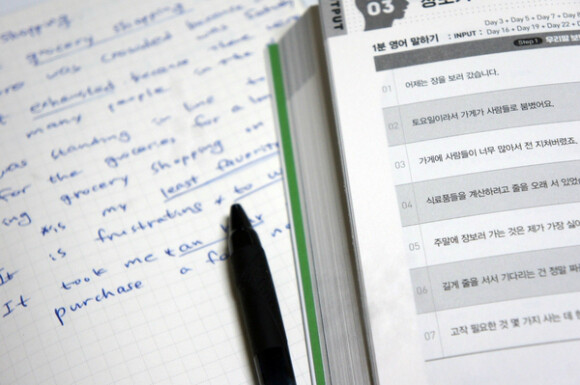 shopping
grocery shopping
was crowded because
exhausted because the
many people in the
was standing in line to
for the groceries for a lo
ing grocery shopping on
is my least favorite
It is frustrating to w
It took me an
purchase a fa
PUT
03
Day 3 + Day 5 + Day 7 + Day
1분 영어 말하기 : INPUT : Day 16 + Day 19 + Day 22 + D
Step 1 우리말 보
01 어제는 장을 보러 갔습니다.
02 토요일이라서 가게가 사람들로 붐볐어요.
03 가게에 사람들이 너무 많아서 전 지쳐버렸죠.
04 식료품들을 계산하려고 줄을 오래 서 있었
05 주말에 장보러 가는 것은 제가 가장 싫어
06 길게 줄을 서서 기다리는 건 정말 짜
07 고작 필요한 것 몇 가지 사는 데 한